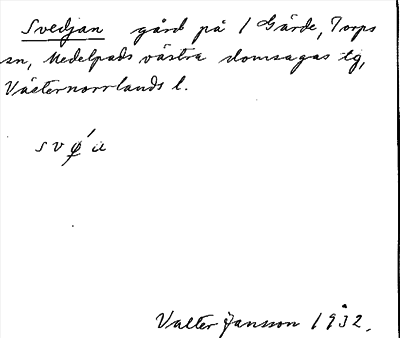 Svedjan gård på 1 Gärde, Torps
sn, Medelpads västra domsagas tg,
Västernorrlands l.
Valter Jansson 1932.